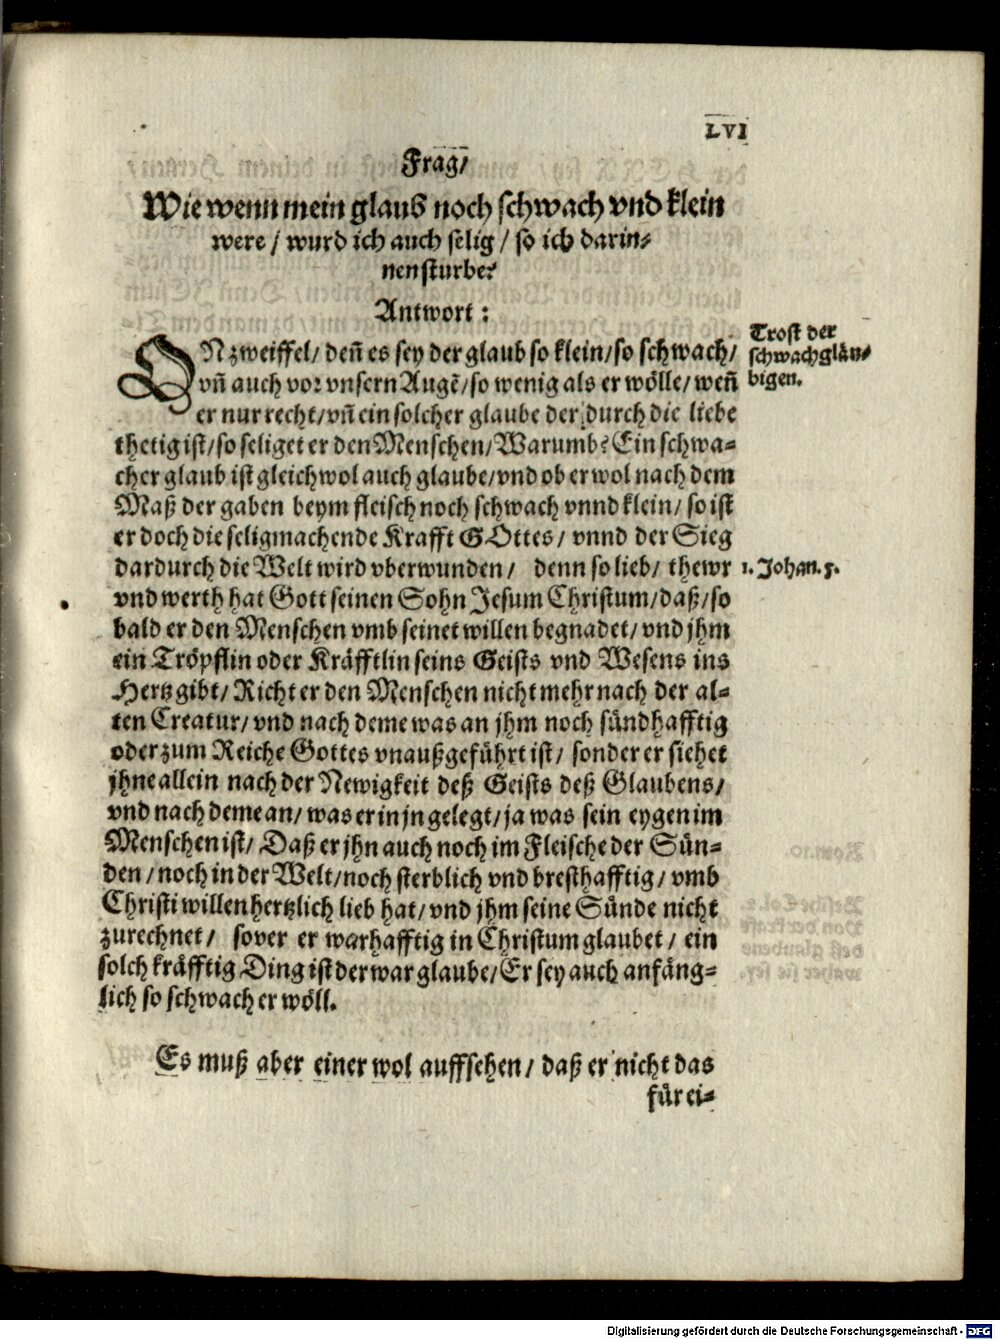 LVI
Frag/
Wie wenn mein glaub noch schwach vnd klein
were / wurd ich auch selig / so ich darin-
nen sturbe?
Antwort:
ONzweiffel/ deñ es sey der glaub so klein/ so schwach/
vñ auch vor vnsern Augẽ/ so wenig als er wölle/ weñ
er nur recht/ vñ ein solcher glaube der durch die liebe
thetig ist/ so seliget er den Menschen/ Warumb? Ein schwa-
cher glaub ist gleichwol auch glaube/ vnd ob er wol nach dem
Maß der gaben beym fleisch noch schwach vnnd klein/ so ist
er doch die seligmachende Krafft GOttes/ vnnd der Sieg
dardurch die Welt wird vberwunden/ denn so lieb/ thewr
vnd werth hat Gott seinen Sohn Jesum Christum/ daß/ so
bald er den Menschen vmb seinet willen begnadet/ vnd jhm
ein Tröpflin oder Kräfftlin seins Geists vnd Wesens ins
Hertz gibt/ Richt er den Menschen nicht mehr nach der al-
ten Creatur/ vnd nach deme was an jhm noch sündhafftig
oder zum Reiche Gottes vnaußgeführt ist/ sonder er siehet
jhne allein nach der Newigkeit deß Geists deß Glaubens/
vnd nach deme an/ was er in jn gelegt/ ja was sein eygen im
Menschen ist/ Daß er jhn auch noch im Fleische der Sün-
den / noch in der Welt/ noch sterblich vnd bresthafftig/ vmb
Christi willen hertzlich lieb hat/ vnd jhm seine Sünde nicht
zurechnet/ sover er warhafftig in Christum glaubet/ ein
solch kräfftig Ding ist der war glaube/ Er sey auch anfäng-
lich so schwach er wöll.
Es muß aber einer wol auffsehen/ daß er nicht das
für ei-
Trost der
schwachgläu-
bigen.
1. Johan. 5.
Digitalisierung gefördert durch die Deutsche Forschungsgemeinschaft - DFG